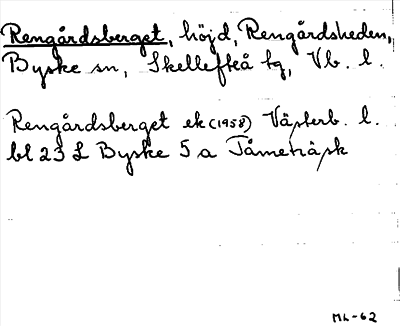 Rengårdsberget, höjd, Rengårdsheden,
Byske sn, Skellefteå tg, Vb. l.
Rengårdsberget ek (1958) Västerb. l.
bl 23 L Byske 5 a Tåmeträsk
ML-62